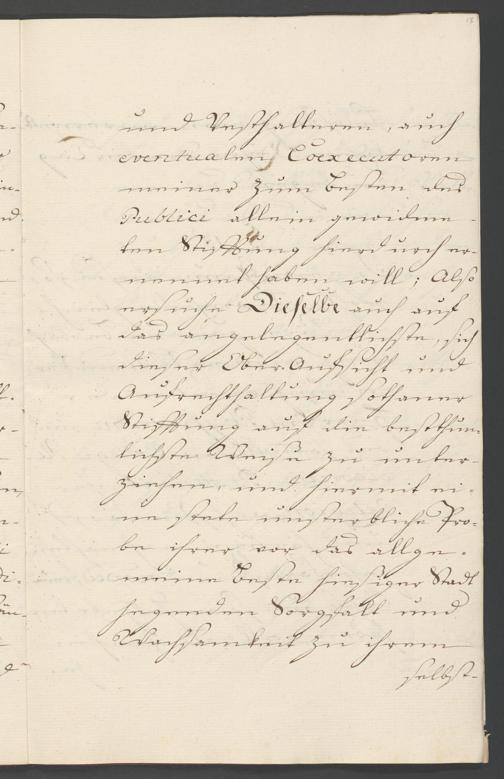 13
und Vesthalteren, auch
eventualen Coexecutoren
meiner zum Besten des
Publici allein gewidme-
ten Stifftung hierdurch er-
nennet haben will; Also
ersuche Dieselbe auch auf
das angelegentlichste, sich
dieser Ober-Aufsicht und
Aufrechthaltung sothaner
Stifftung auf die bestthun-
lichste Weise zu unter-
ziehen, und hiermit ei-
ne stete unsterbliche Pro-
be ihrer vor das allge-
meine Beste hiesiger Stadt
hegenden Sorgfalt und
Wachsamkeit zu ihrem
selbst-